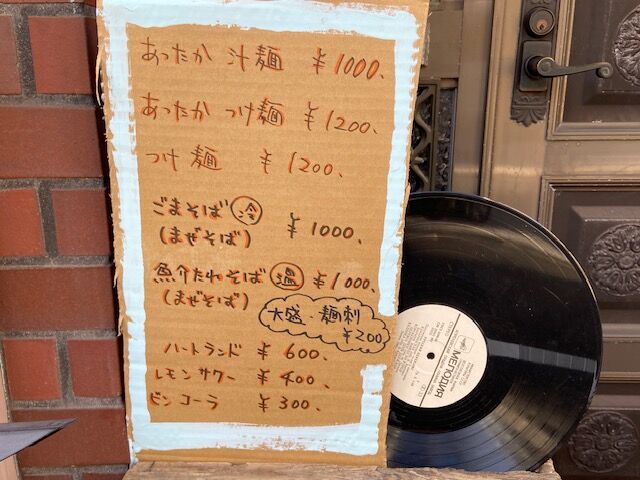 あったか 汁麺 ¥1000、
あったか つけ麺 ¥1200、
つけ麺 ¥1200、
ごまそば 冷 ¥1000、
(まぜそば)
魚介たれそば 温 ¥1000、
(まぜそば)
大盛・麺刺
¥200
ハートランド ¥600、
レモンサワー ¥400、
ビンコーラ ¥300、
МЕЛОДИЯ